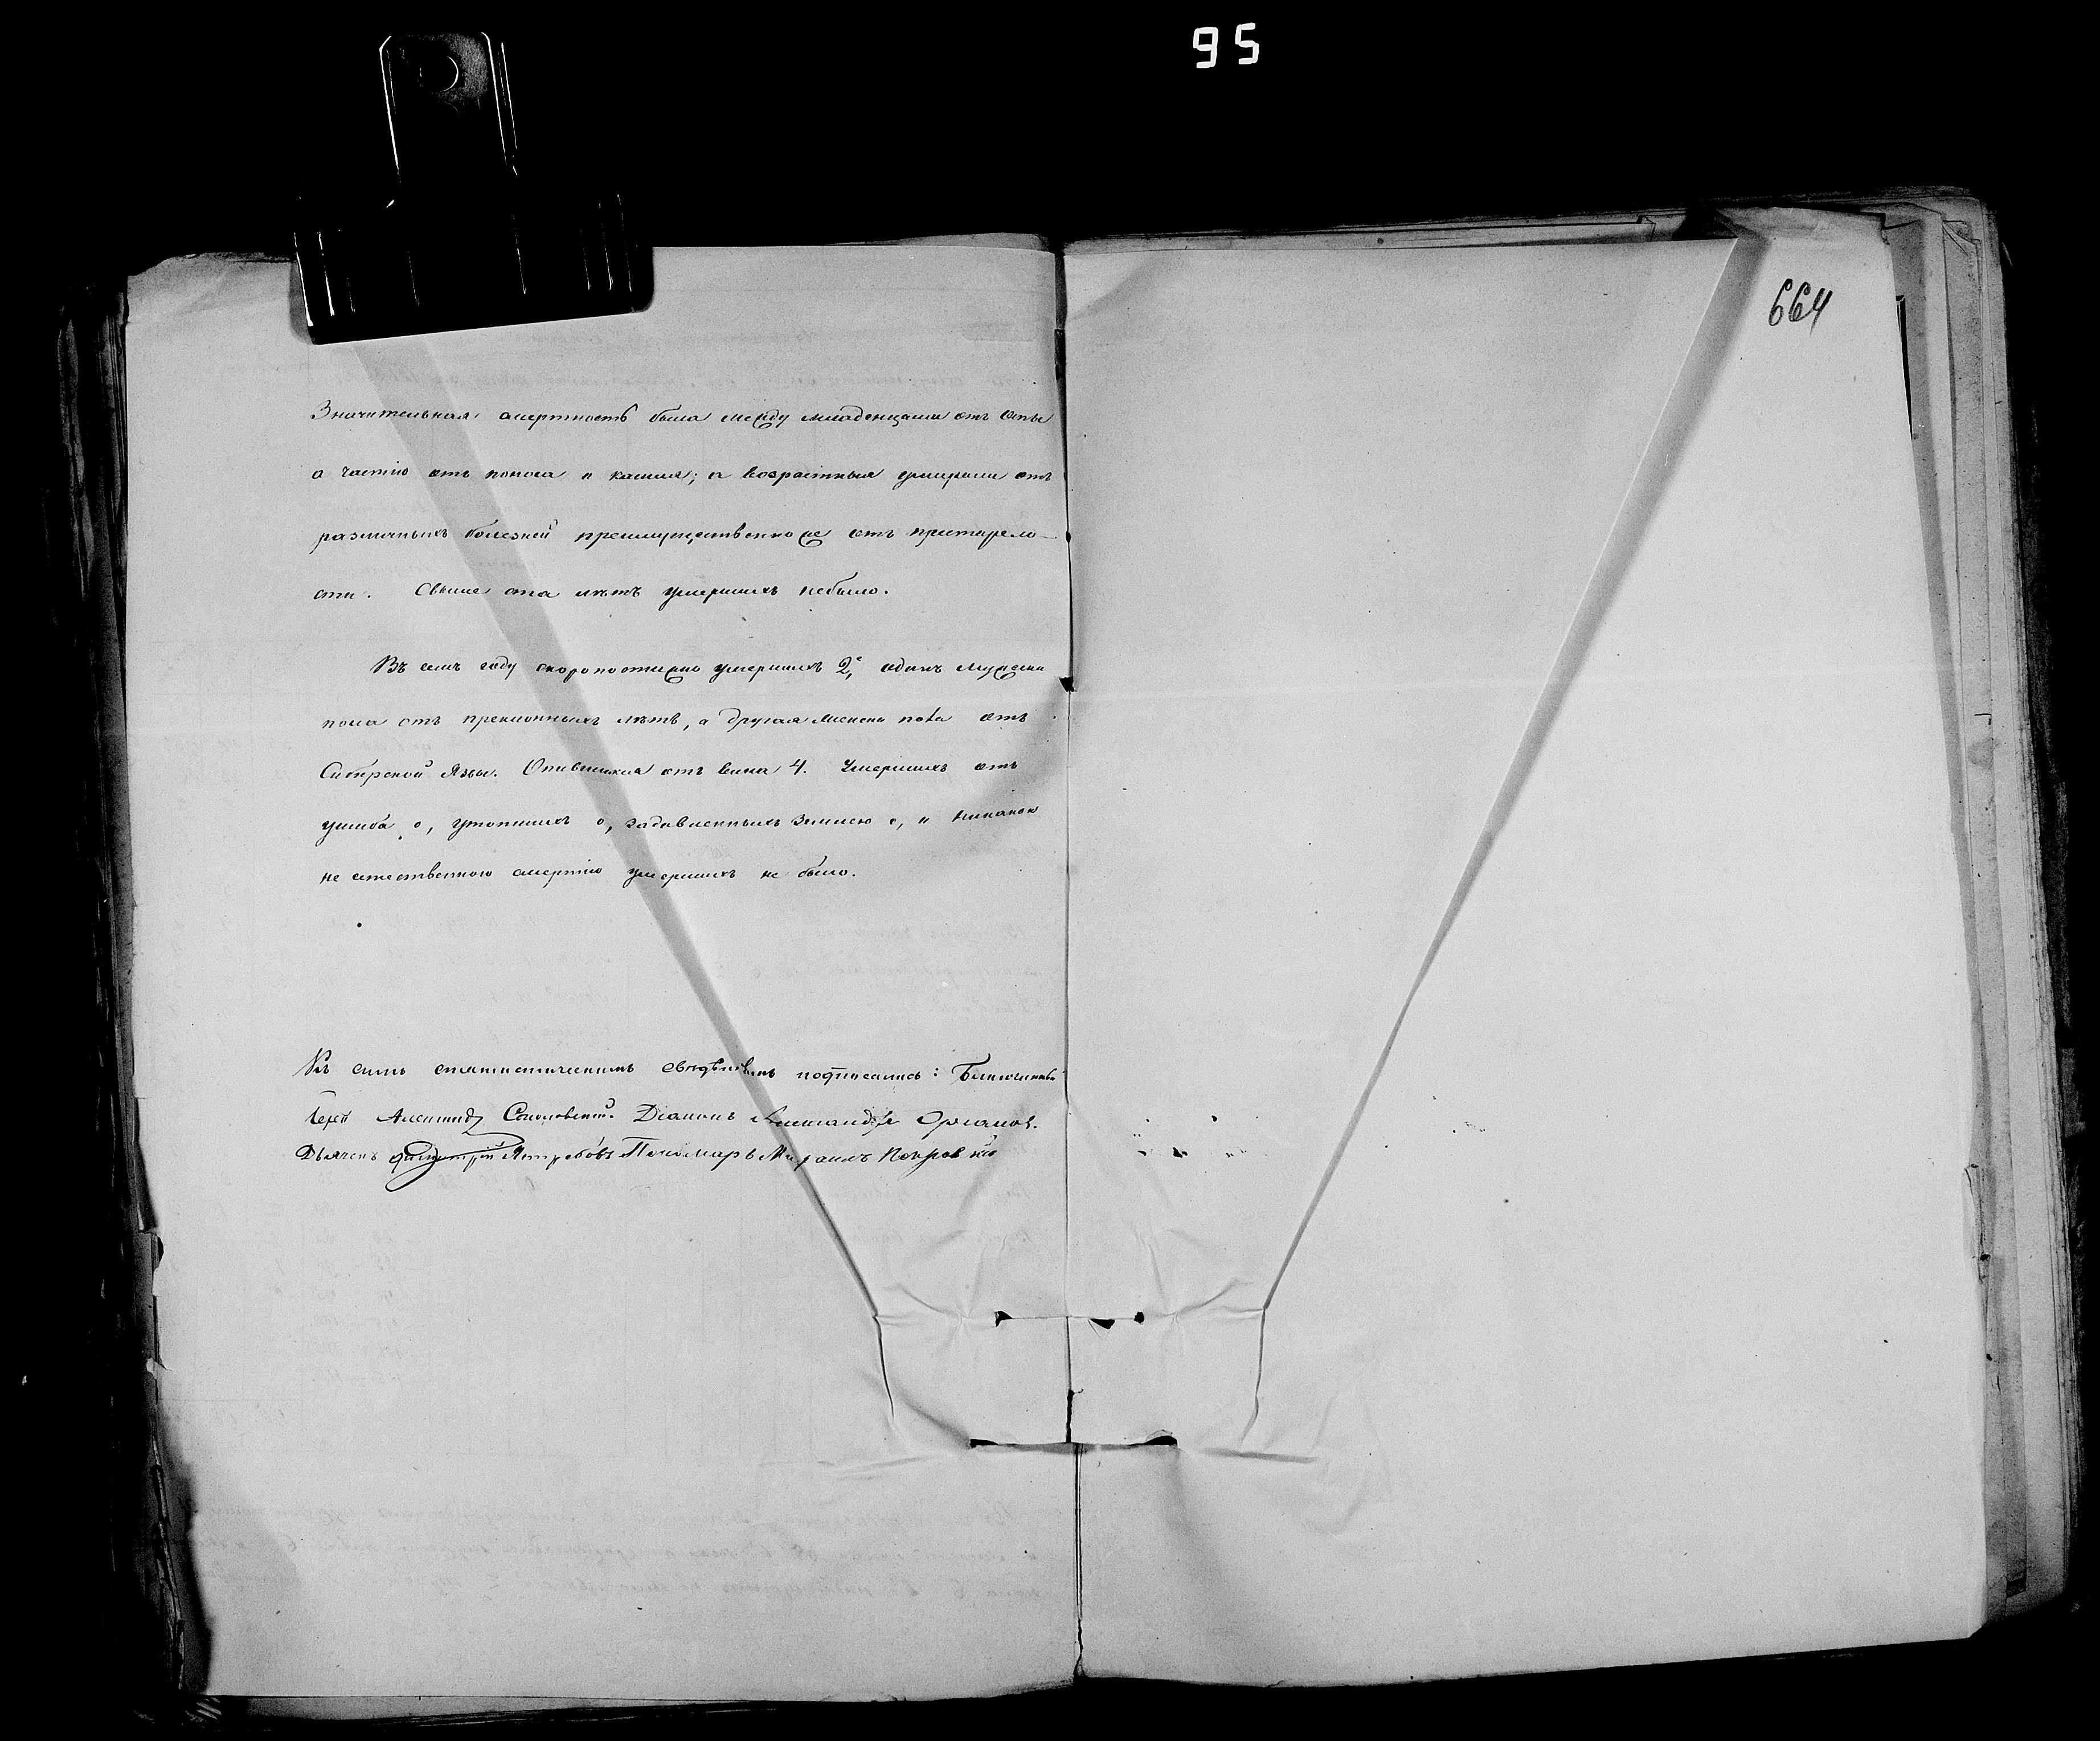 95
664
Значительная смертность была между младенцами отъ оспы
а частію отъ поноса и кашля; а возрастныя умирали отъ
различныхъ болезней преимущественно же отъ престарело-
сти. Свыше ста лѣтъ умершихъ небыло.
Въ семъ году скоропостижно умершихъ 2, одинъ мужеска
пола отъ преклонныхъ лѣтъ, а другая женска пола отъ
Сибирской Язвы. Опившихся отъ вина 4. Умершихъ отъ
ушиба 0, утопшихъ 0, задавленныхъ землею 0, и никакою
не естественною смертію умершихъ не было.
Къ симъ статистическимъ свѣдѣніямъ подписались: Благочинный
Іерей Александръ Соколовский. Діаконъ Александръ
Дьячекъ Димитрий Ястребовъ Пономарь Михаилъ Покровский